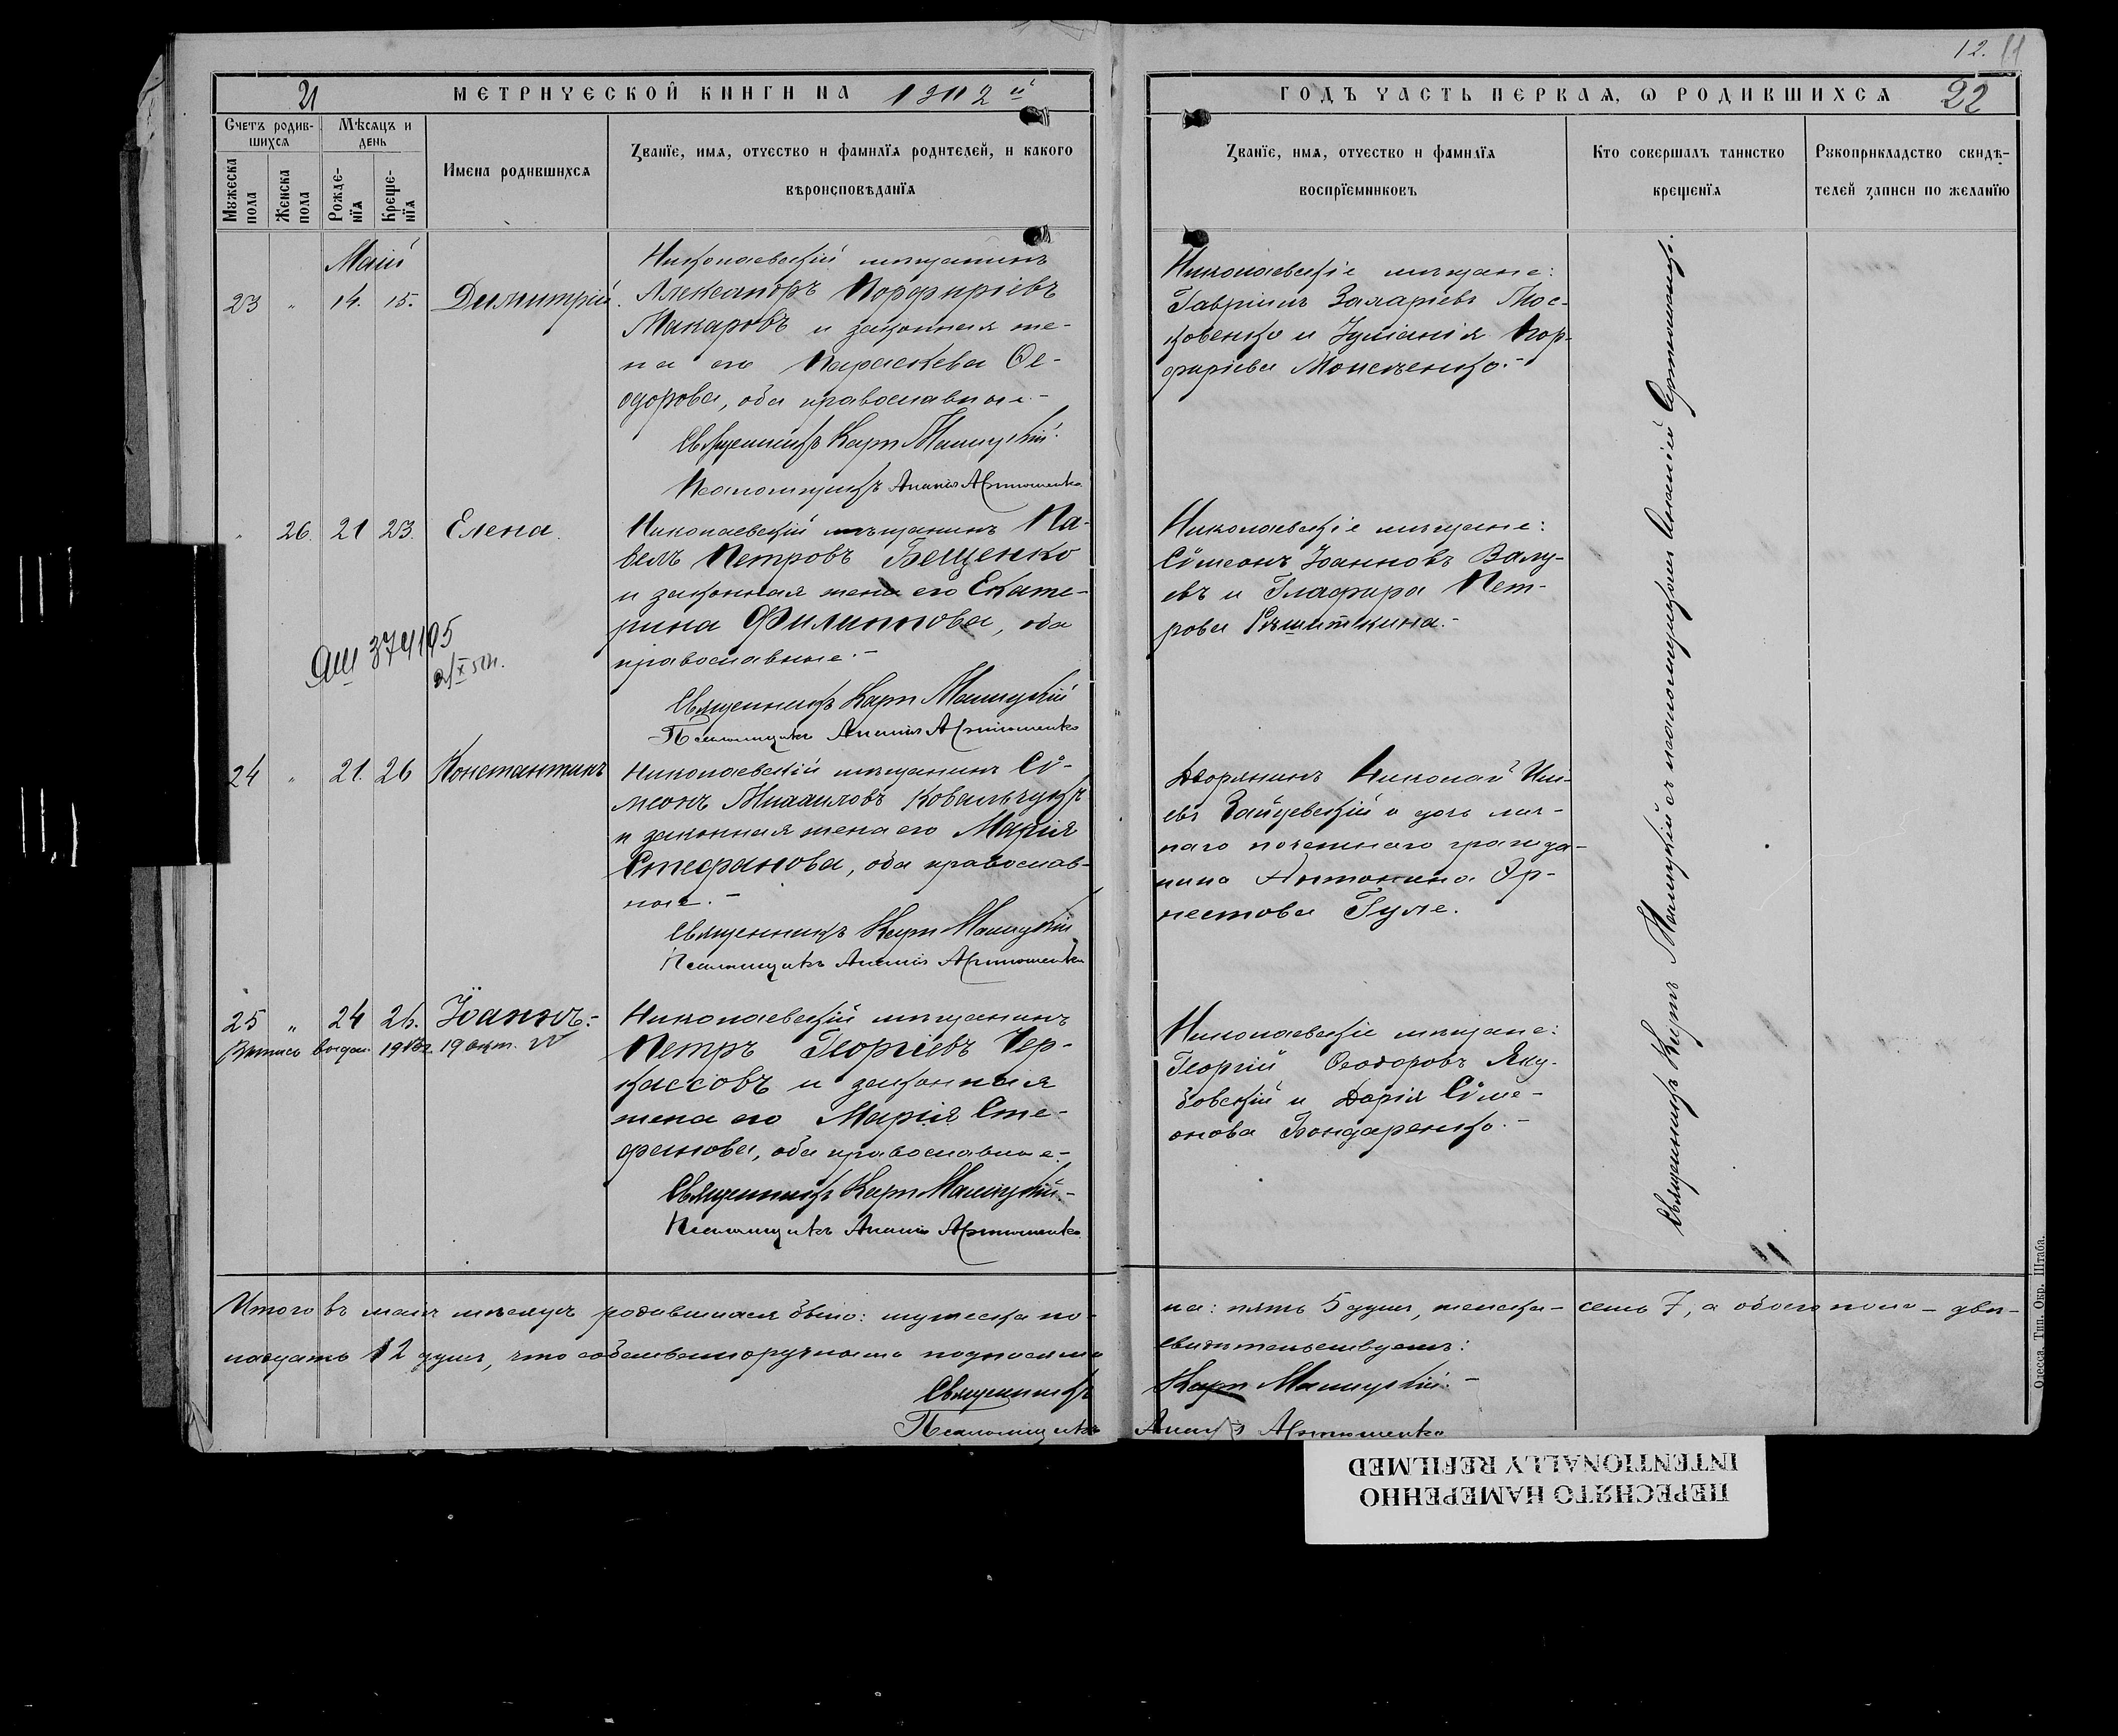 12. 11
21 МЕТРИЧЕСКОЙ КНИГИ НА 1912й
ГОДЪ ЧАСТЬ ПЕРВАЯ, Ѡ РОДИВШИХСЯ 22
Счетъ родив-
шихся
Мѣсяцъ и
день
Мужеска
пола
Женска
пола
Рожде-
нїя
Креще-
нїя
Имена родившихся
Званїе, имя, отчество и фамилїя родителей, и какого
вѣроисповѣданїя
Званїе, имя, отчество и фамилїя
воспрїемниковъ
Кто совершалъ таинство
крещенїя
Рукоприкладство свидѣ-
телей записи по желанїю
Май
23 " 14. 15. Димитрій.
Николаевскій мѣщанинъ
Александръ Порфиріевъ
Макаровъ и законная же-
на его Параскева Ѳе-
одорова, оба православные.-
Священникъ Карп
Псаломщикъ Ананія Артюшенко
Николаевскіе мѣщане:
Гавріилъ Захаріевъ Мос-
ковенко и Іуліанія Пор-
фиріева Моисеенко.-
" 26. 21 23. Елена.
Николаевскій мѣщанинъ Па-
велъ Петровъ Бещенко
и законная жена его Екате-
рина Филиппова, оба
православные.-
Священникъ Карп
Псаломщикъ Ананія Артюшенко
374195
Николаевскіе мѣщане:
Сѵмеонъ Іоанновъ Валу-
евъ и Глафира Пет-
рова
24 " 21. 26 Константинъ
Николаевскій мѣщанинъ Сѵ-
меонъ Михаиловъ Ковальчукъ
и законная жена его Марія
Стефанова, оба православ-
ные.-
Священникъ Карп
Псаломщикъ Ананія Артюшенко
Дворянинъ Николай Иль-
евъ Зайцевскій и дочь лич-
наго почетнаго гражда-
нина Антонина Эр-
нестова Гуле.
25 " 24 26. Іоаннъ.-
19 окт.
Николаевскій мѣщанинъ
Петръ Георгіевъ Чер-
кассовъ и законная
жена его Марія Сте-
фанова, оба православные.-
Священникъ Карп
Псаломщикъ Ананія Артюшенко
Николаевскіе мѣщане:
Георгій Ѳеодоровъ Яку-
бовскій и Дарія Сѵме-
онова Бондаренко.-
Священникъ Карпъ съ псаломщикомъ Ананіей Артюшенко.
Итого въ маѣ мѣсяцѣ родившихся было: мужеска по-
ла: пять 5 душъ, женска - семь 7, а обоего пола - двѣ-
надцать 12 душъ, что собственноручною подписью
свидѣтельствуемъ:
Священникъ Карп
Псаломщикъ Ананія Артюшенко
Одесса. Тип. Окр. Штаба.
ПЕРЕСНЯТО НАМЕРЕННО
INTENTIONALLY REFILMED